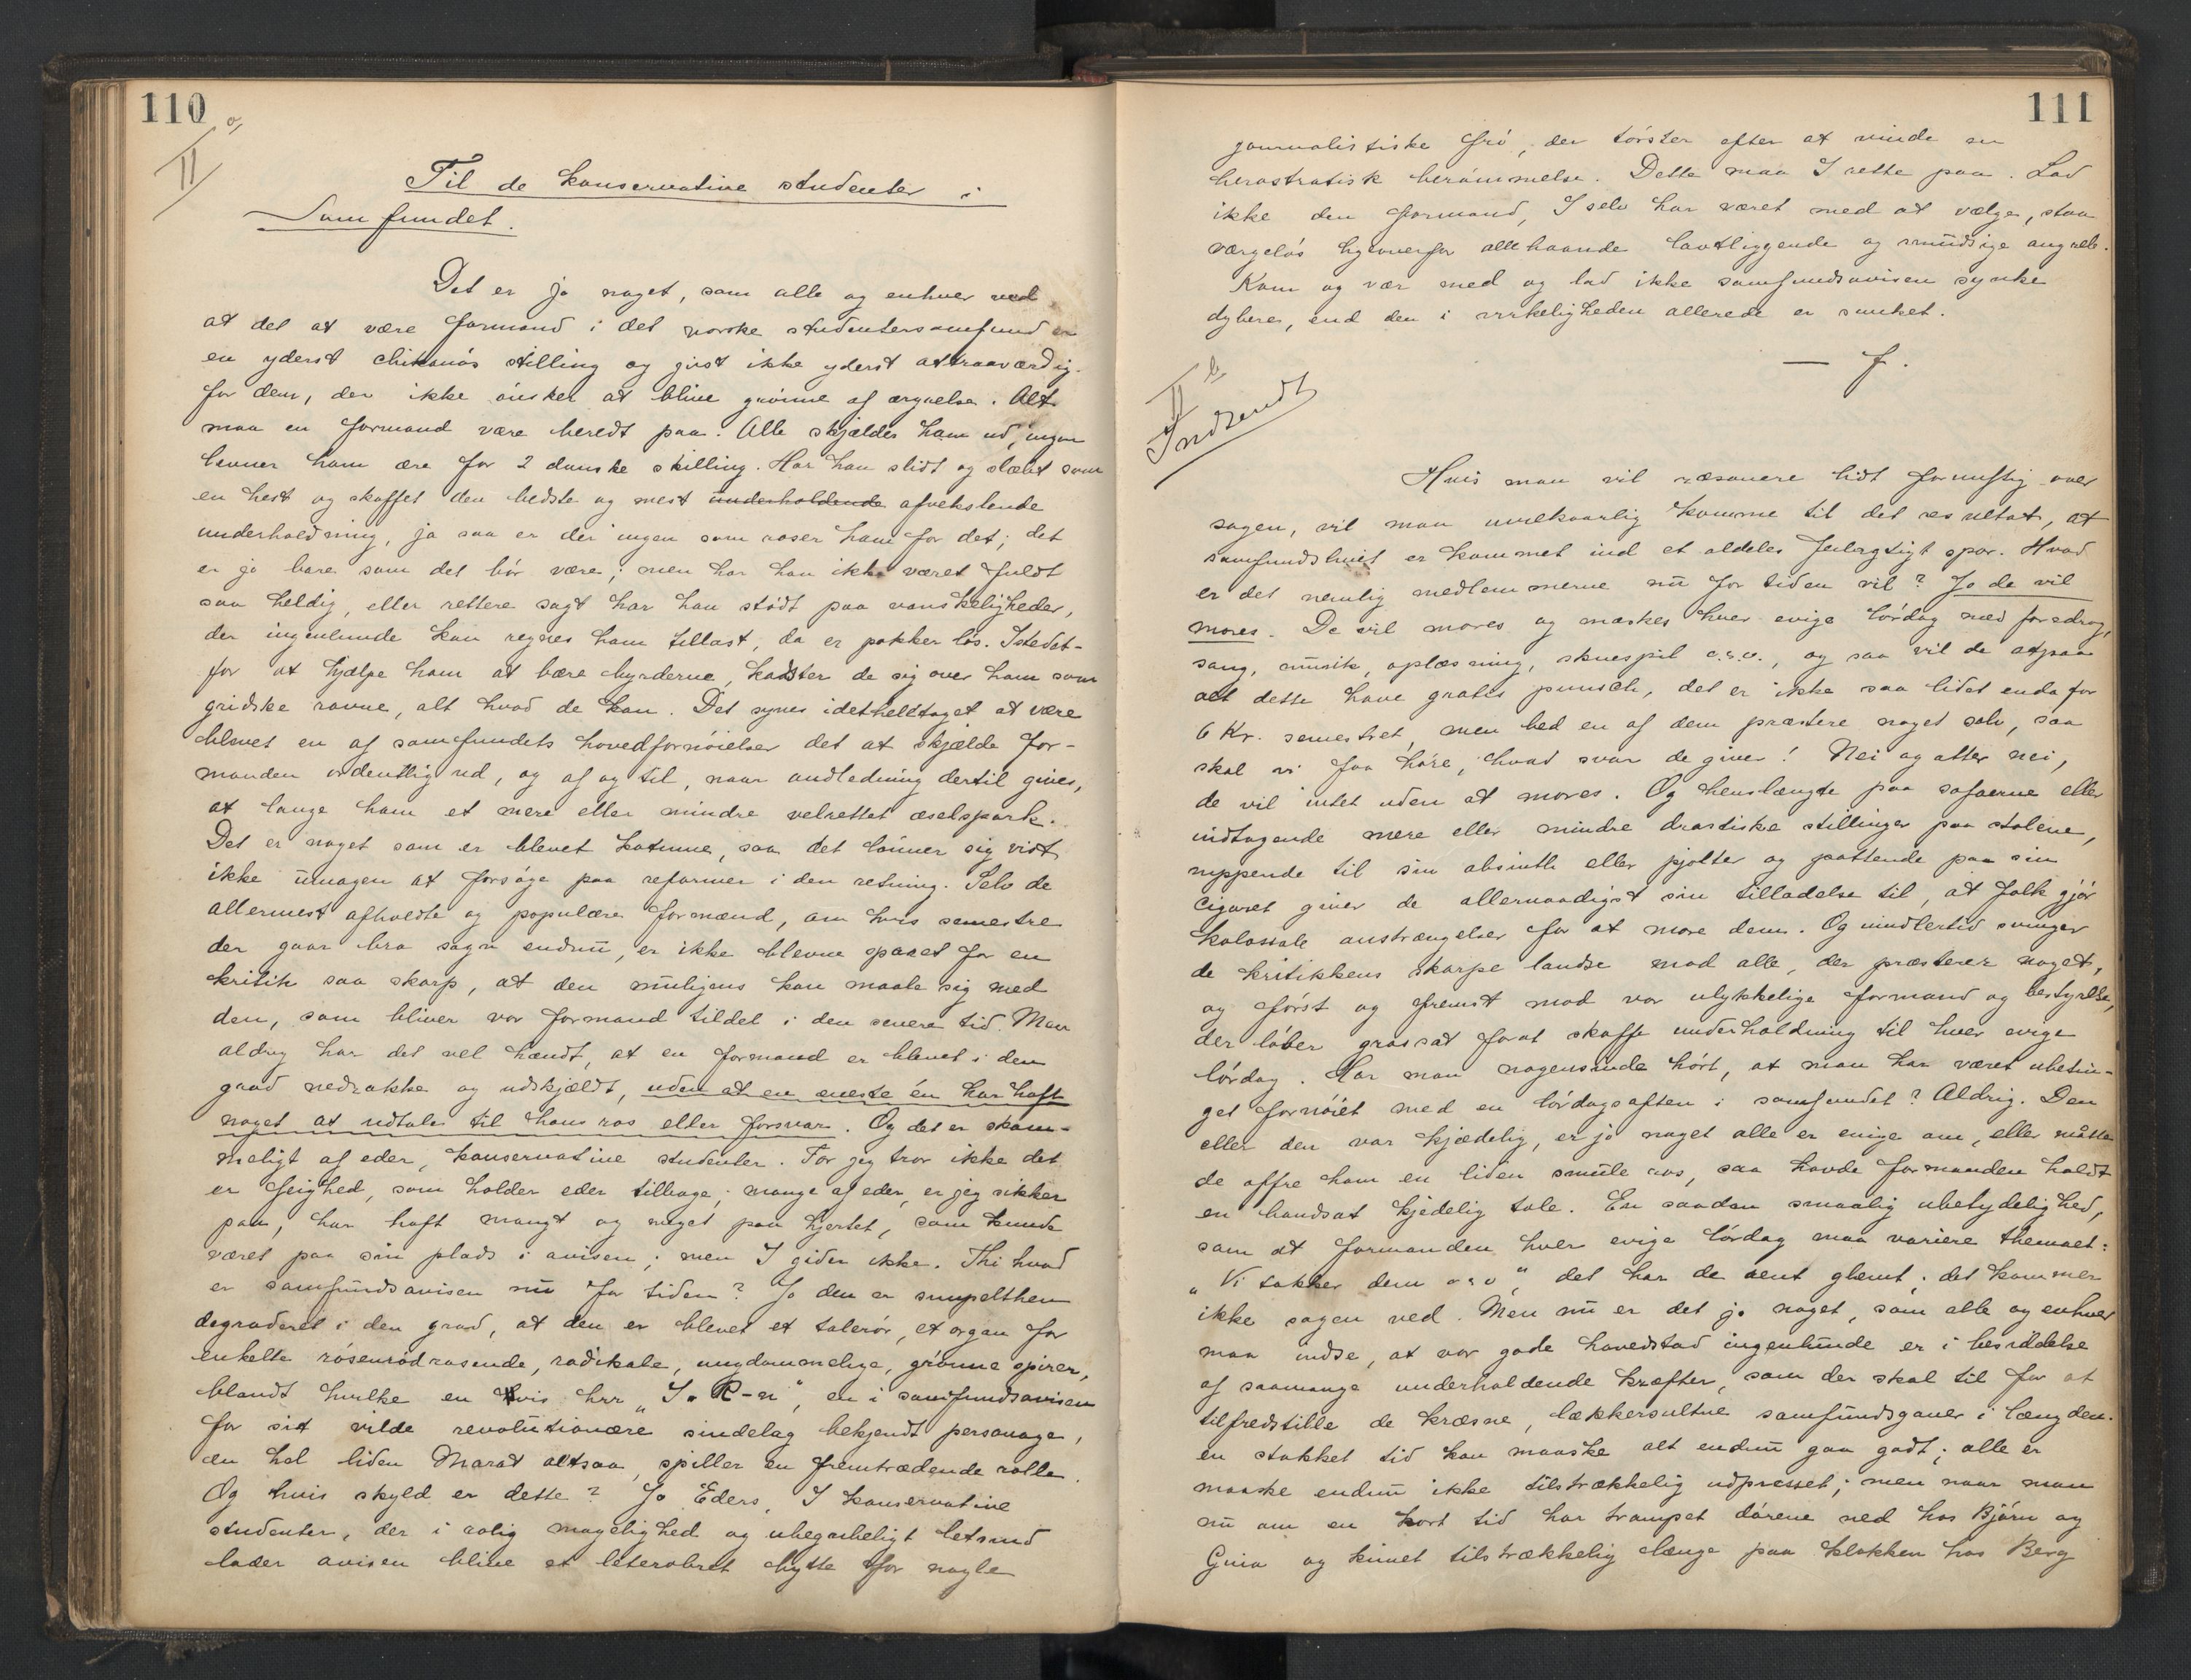 110
II a,
Til de konservative studenter i
Samfundet.
Det er jo noget, som alle og enhver ved
at det at være formand i det norske studentersamfund er
en yderst chikanøs stilling og just ikke yderst attraaværdig
for dem, der ikke ønsker at blive grønne af ærgrelse. Alt
maa en formand være beredt paa. Alle skjælder ham ud, ingen
levner ham ære for 2 danske skilling. Har han slidt og slæbt som
en hest og skaffet den bedste og mest underholdende afvekslende
underholdning, ja saa er der ingen som roser ham for det; det
er jo bare som det bør være; men har han ikke været fuldt
saa heldig, eller rettere sagt har han stødt paa vanskeligheder,
der ingenlunde kan regnes ham tillast, da er pokker løs. Istedet-
for at hjælpe ham at bære byrderne, kaster de sig over ham som
gridske ravne, alt hvad de kan. Det synes idetheletaget at være
blevet en af samfundets hovedfornøielser det at skjælde for-
manden ordentlig ud, og af og til, naar andledning dertil gives,
at lange ham et mere eller mindre velrettet æselspark.
Det er noget som er blevet kotume, saa det lønner sig vist
ikke umagen at forsøge paa reformer i den retning. Selv de
allermest afholdte og populære formænd, om hvis semestre
der gaar bra sagn endnu, er ikke blevne sparet for en
kritik saa skarp, at den muligens kan maale sig med
den, som bliver vor formand tildel i den senere tid. Men
aldrig har det vel hændt, at en formand er blevet i den
grad nedrakke og udskjældt, uden at en eneste én har haft
noget at udtale til hans ros eller forsvar. Og det er skam-
meligt af eder, konservative studenter. For jeg tror ikke det
er feighed, som holder eder tilbage; mange af eder, er jeg sikker
paa, har haft mangt og meget paa hjertet, som kunde
været paa sin plads i avisen; men I gider ikke. Thi hvad
er samfundsavisen nu for tiden? Jo den er simpelthen
degraderet i den grad, at den er blevet et talerør, et organ for
enkelte rosenrødrasende, radikale, ungdommelige, grønne spirer,
blandt hvilke en vis hrr „I. R-n", en i samfundsavisen
for sit vilde revolutionære sindelag bekjendt personage,
en hel liden Marat altsaa, spiller en fremtrædende rolle.
Og hvis skyld er dette? Jo Eders, I konservative
studenter, der i rolig magelighed og ubegribeligt letsind
lader avisen blive et literært bytte for nogle
111
journalistiske frø, der tørster efter at vinde en
herostratisk berømmelse. Dette maa I rette paa. Lad
ikke den formand, I selv har været med at vælge, staa
værgeløs ligeoverfor allehaande lavtliggende og smudsige angreb.
Kom og vær med og lad ikke samfundsavisen synke
dybere, end den i virkeligheden allerede er sunket.
— f.
II b
Indsendt
Hvis man vil ræsonere lidt fornuftig over
sagen, vil man uvilkaarlig komme til det resultat, at
samfundslivet er kommet ind et aldeles feilagtigt spor. Hvad
er det nemlig medlemmerne nu for tiden vil? Jo de vil
mores. De vil mores og mæskes hver evige lørdag med foredrag,
sang, musik, oplæsning, skuespil o.s.v., og saa vil de atpaa
alt dette have gratis punsch, det er ikke saa lidet enda for
6 Kr. semestret, men bed en af dem præstere noget selv, saa
skal vi faa høre, hvad svar de giver! Nei og atter nei,
de vil intet uden at mores. Og henslængte paa sofaerne eller
indtagende mere eller mindre drastiske stillinger paa stolene,
nippende til sin absinth eller pjolter og pattende paa sin
cigaret giver de allernaadigst sin tilladelse til, at folk gjør
kolossale anstrængelser for at more dem. Og imidlertid svinger
de kritikkens skarpe landse mod alle, der præsterer noget,
og først og fremst mod vor ulykkelige formand og bestyrelse,
der løber grassat forat skaffe underholdning til hver evige
lørdag. Har man nogensinde hørt, at man har været ubetin-
get fornøiet med en lørdagsaften i samfundet? Aldrig. Den
eller den var kjædelig, er jo noget alle er enige om, eller måtte
de offre ham en liden smule ros, saa havde formanden holdt
en bandsat kjedelig tale. En saadan smaalig ubetydelighed,
som at formanden hver evige lørdag maa variere themaet:
„Vi takker dem osv", det har de rent glemt; det kommer
ikke sagen ved. Men nu er det jo noget, som alle og enhver
maa indse, at vor gode hovedstad ingenlunde er i besiddelse
af saamange underholdende kræfter, som der skal til for at
tilfredstille de kræsne, lækkersultne samfundsganer i længden.
en stakket tid kan maaske alt endnu gaa godt; alle er
maaske endnu ikke tilstrækkelig udpresset; men naar man
nu om en kort tid har trampet dørene ned hos Bjørn og
Gina og kimet tilstrækkelig længe paa klokken hos Berg